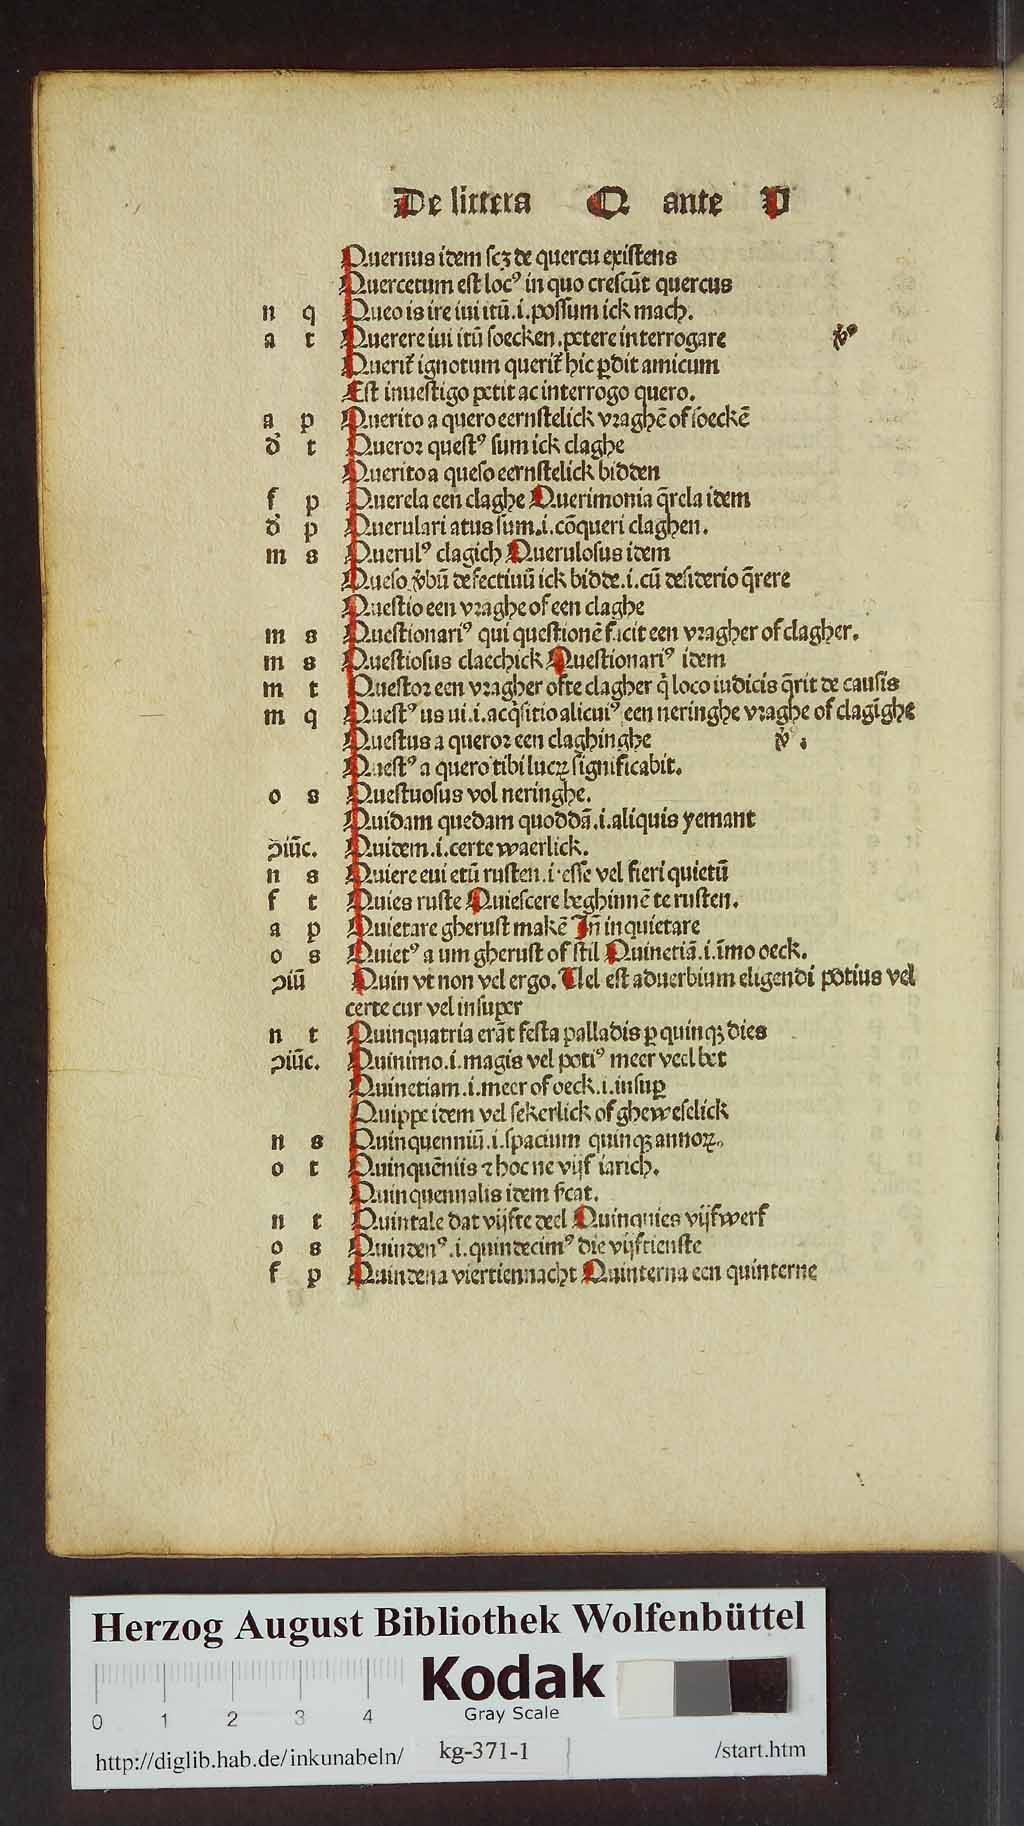 De littera Q ante V
Quernus idem scꝫ de quercu existens
Quercetum est locꝰ in quo crescūt quercus
n q Queo is ire iui itū.i.possum ick mach.
a t Querere iui itū soecken.petere interrogare ꝟꝰ
Querit᷑ ignotum querit᷑ hic ꝑdit amicum
Est inuestigo petit ac interrogo quero.
a p Querito a quero eernstelick vraghē of soeckē
d᷑ t Queror questꝰ sum ick claghe
Querito a queso eernstelick bidden
f p Querela een claghe Querimonia q̄rela idem
d᷑ p Querulari atus sum.i.cōqueri claghen.
m s Querulꝰ clagich Querulosus idem
Queso ꝟbū defectiuū ick bidde.i.cū desiderio q̄rere
Questio een vraghe of een claghe
m s Questionariꝰ qui questionē facit een vragher of clagher.
m s Questiosus claechick Questionariꝰ idem
m t Questor een vragher ofte clagher q̇ loco iudicis q̄rit de causis
m q Questꝰ us ui.i.acq̇sitio alicuiꝰ een neringhe vraghe of clagīghe
Questus a queror een claghinghe ꝟ.
Questꝰ a quero tibi lucꝝ significabit.
o s Questuosus vol neringhe.
Quidam quedam quoddā.i.aliquis yemant
ꝯiūc. Quidem.i.certe waerlick.
n s Quiere eui etū rusten.i.esse vel fieri quietū
f t Quies ruste Quiescere beghinnē te rusten.
a p Quietare gherust makē Jn̄ inquietare
o s Quietꝰ a um gherust of stil Quinetiā.i.īmo oeck.
ꝯiū Quin vt non vel ergo. Uel est aduerbium eligendi potius vel
certe cur vel insuper
n t Quinquatria erāt festa palladis ꝑ quinqꝫ dies
ꝯiūc. Quinimo.i.magis vel potiꝰ meer veel bet
Quinetiam.i.meer of oeck.i.insuꝑ
Quippe idem vel sekerlick of gheweselick
n s Quinquenniū.i.spacium quinqꝫ annoꝝ.
o t Quinquēniis ⁊ hoc ne vijf iarich.
Quinquennalis idem s᷑cat.
n t Quintale dat vijfte deel Quinquies vijfwerf
o s Quindenꝰ.i.quindecimꝰ die vijftienste
f p Quindena viertiennacht Quinterna een quinterne
Herzog August Bibliothek Wolfenbüttel
Kodak
Gray Scale
0 1 2 3 4
http://diglib.hab.de/inkunabeln/ kg-371-1 /start.htm